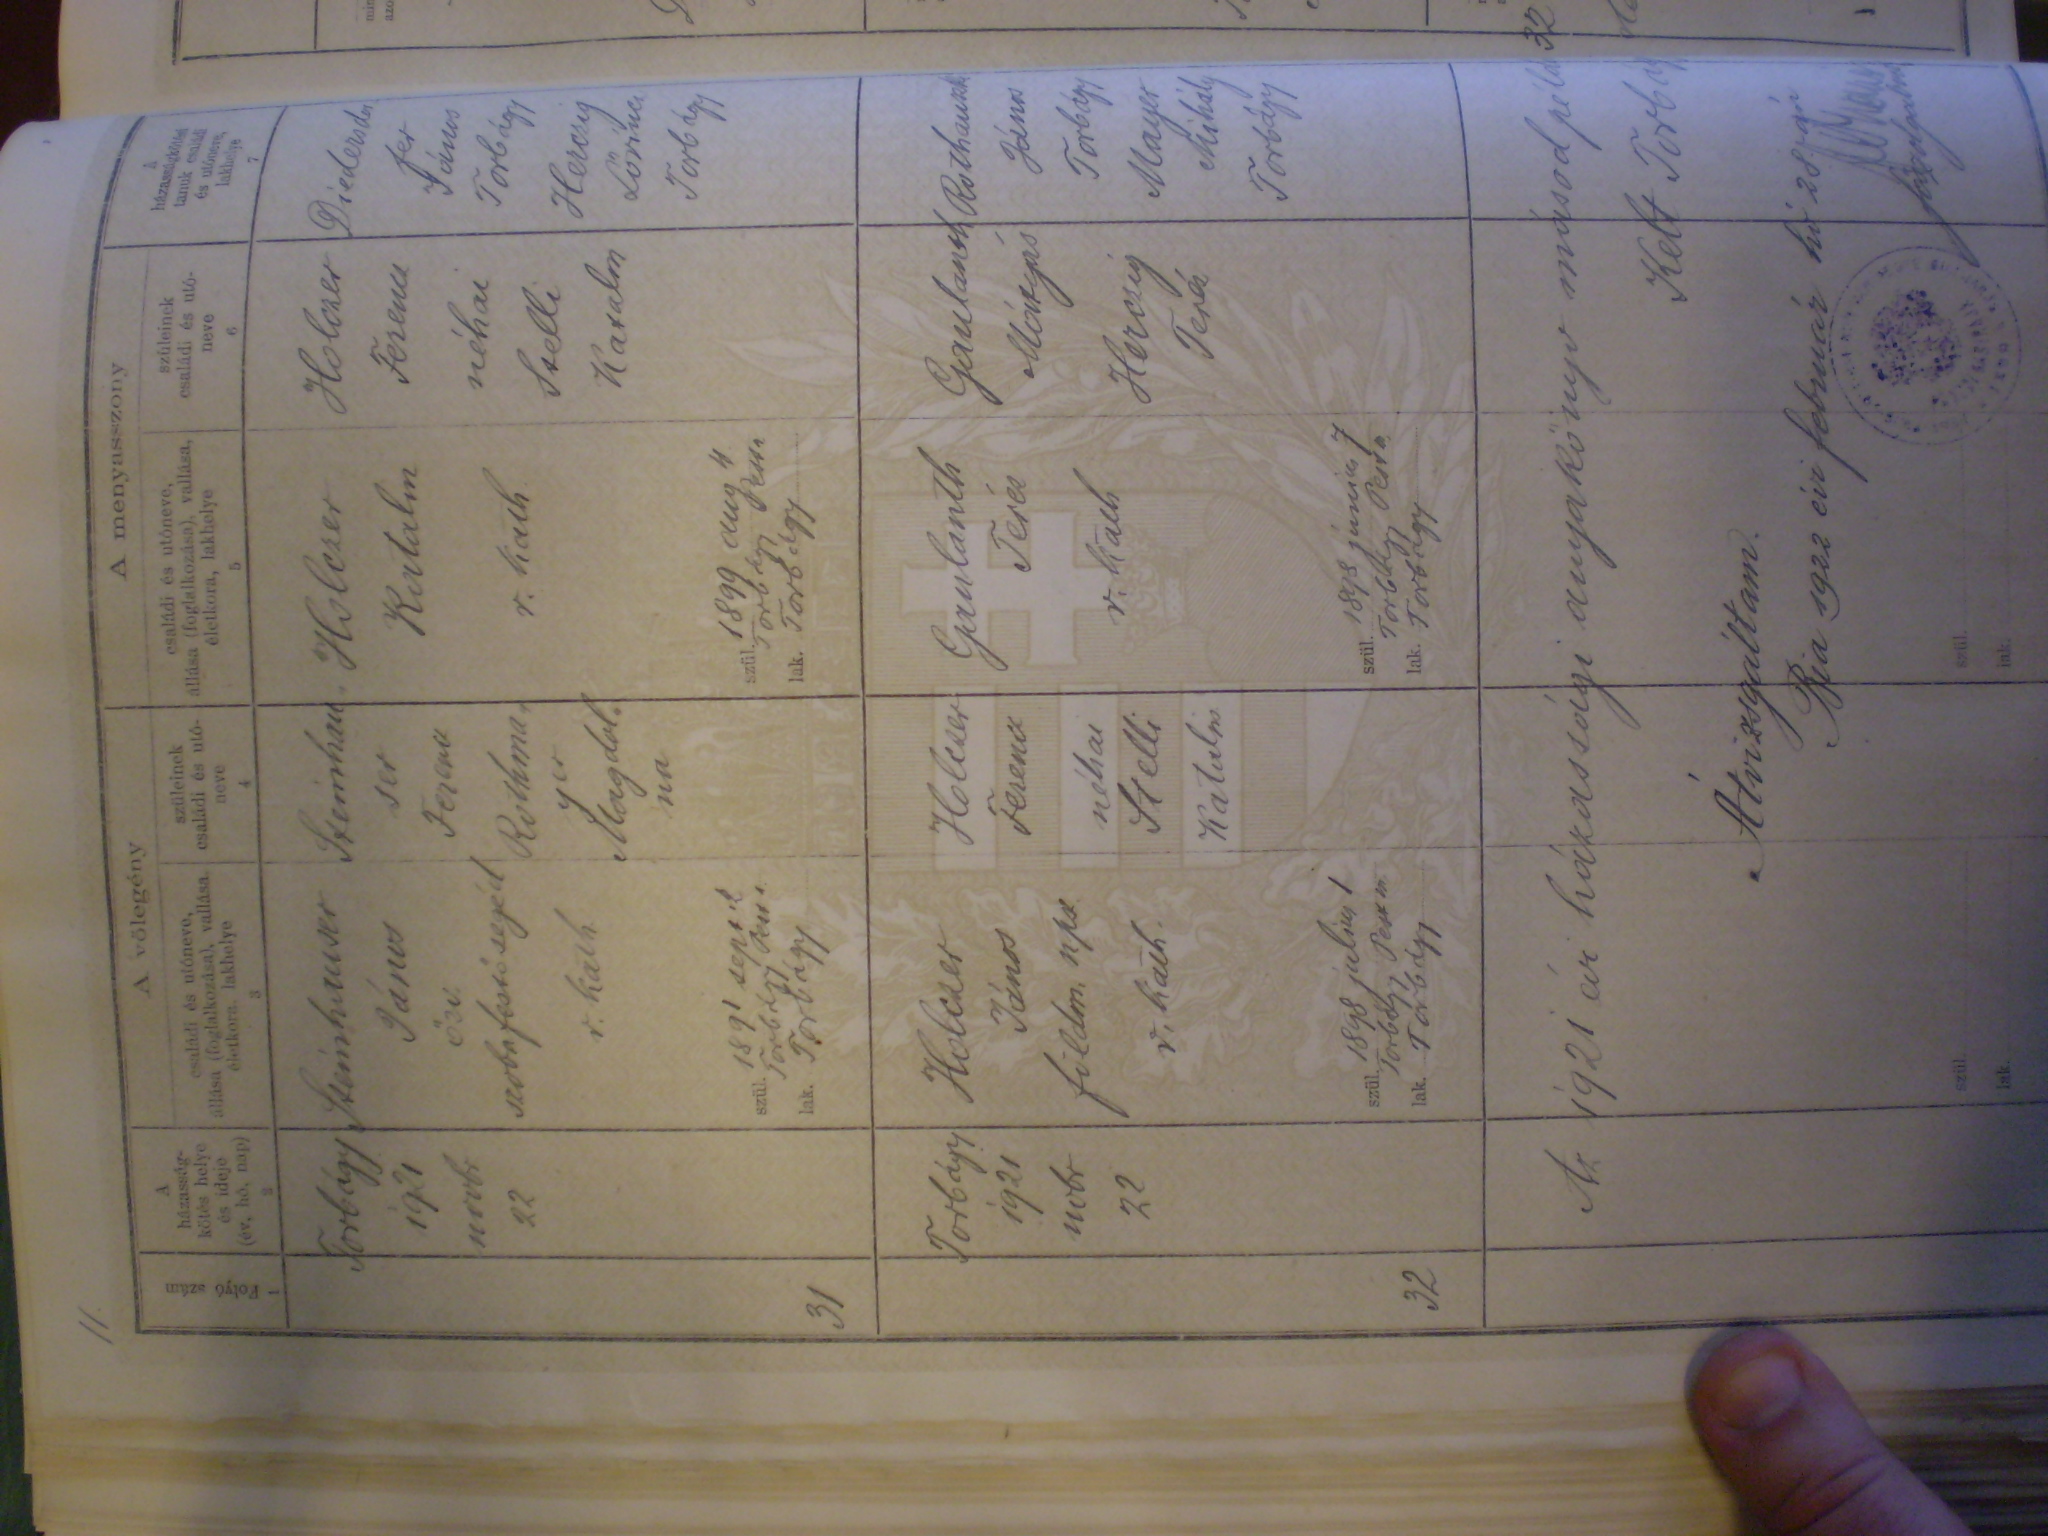 11.
A vőlegény
A menyasszony
Folyó
szám
1
A
házasság-
kötés helye
és ideje
(év, hó, nap)
2
családi és utóneve,
állása (foglalkozása), vallása,
életkora, lakhelye
3
szüleinek
családi és utó-
neve
4
családi és utóneve,
állása (foglalkozása), vallása,
életkora, lakhelye
5
szüleinek
családi és utó-
neve
6
A
házasságkötési
tanuk családi
és utóneve,
lakhelye
7
31
Torbágy
1921
novbr
22
Steinhauser
János
özv.
szobafestősegéd
r. kath
szül. 1891 sept 2
Torbágy Pest.
lak. Torbágy
Steinhau-
ser
Ferenc
Rothma-
yer
Magdol-
na
Holczer
Katalin
r. kath.
szül. 1899 aug 4
Torbágy Pest
lak. Torbágy
Holczer
Ferenc
néhai
Stelli
Katalin
Diedersdor
fer
János
Torbágy
Herczig
Lőrincz
Torbágy
32
Torbágy
1921
novbr
22
Holczer
János
földm. npsz
r. kath.
szül. 1898 július 1
Torbágy Pest m.
lak. Torbágy
Holczer
Ferenc
néhai
Stelli
Katalin
Teréz
r. kath
szül. 1898 június 7
Torbágy Pest
lak. Torbágy
Herczig
Teréz
János
Torbágy
Mayer
Mihály
Torbágy
Az 1921 évi házassági anyakönyv másod
Kelt
Átvizsgáltam.
Bia 1922 évi február hó 28.-án
szül.
lak.
szül.
lak.
32